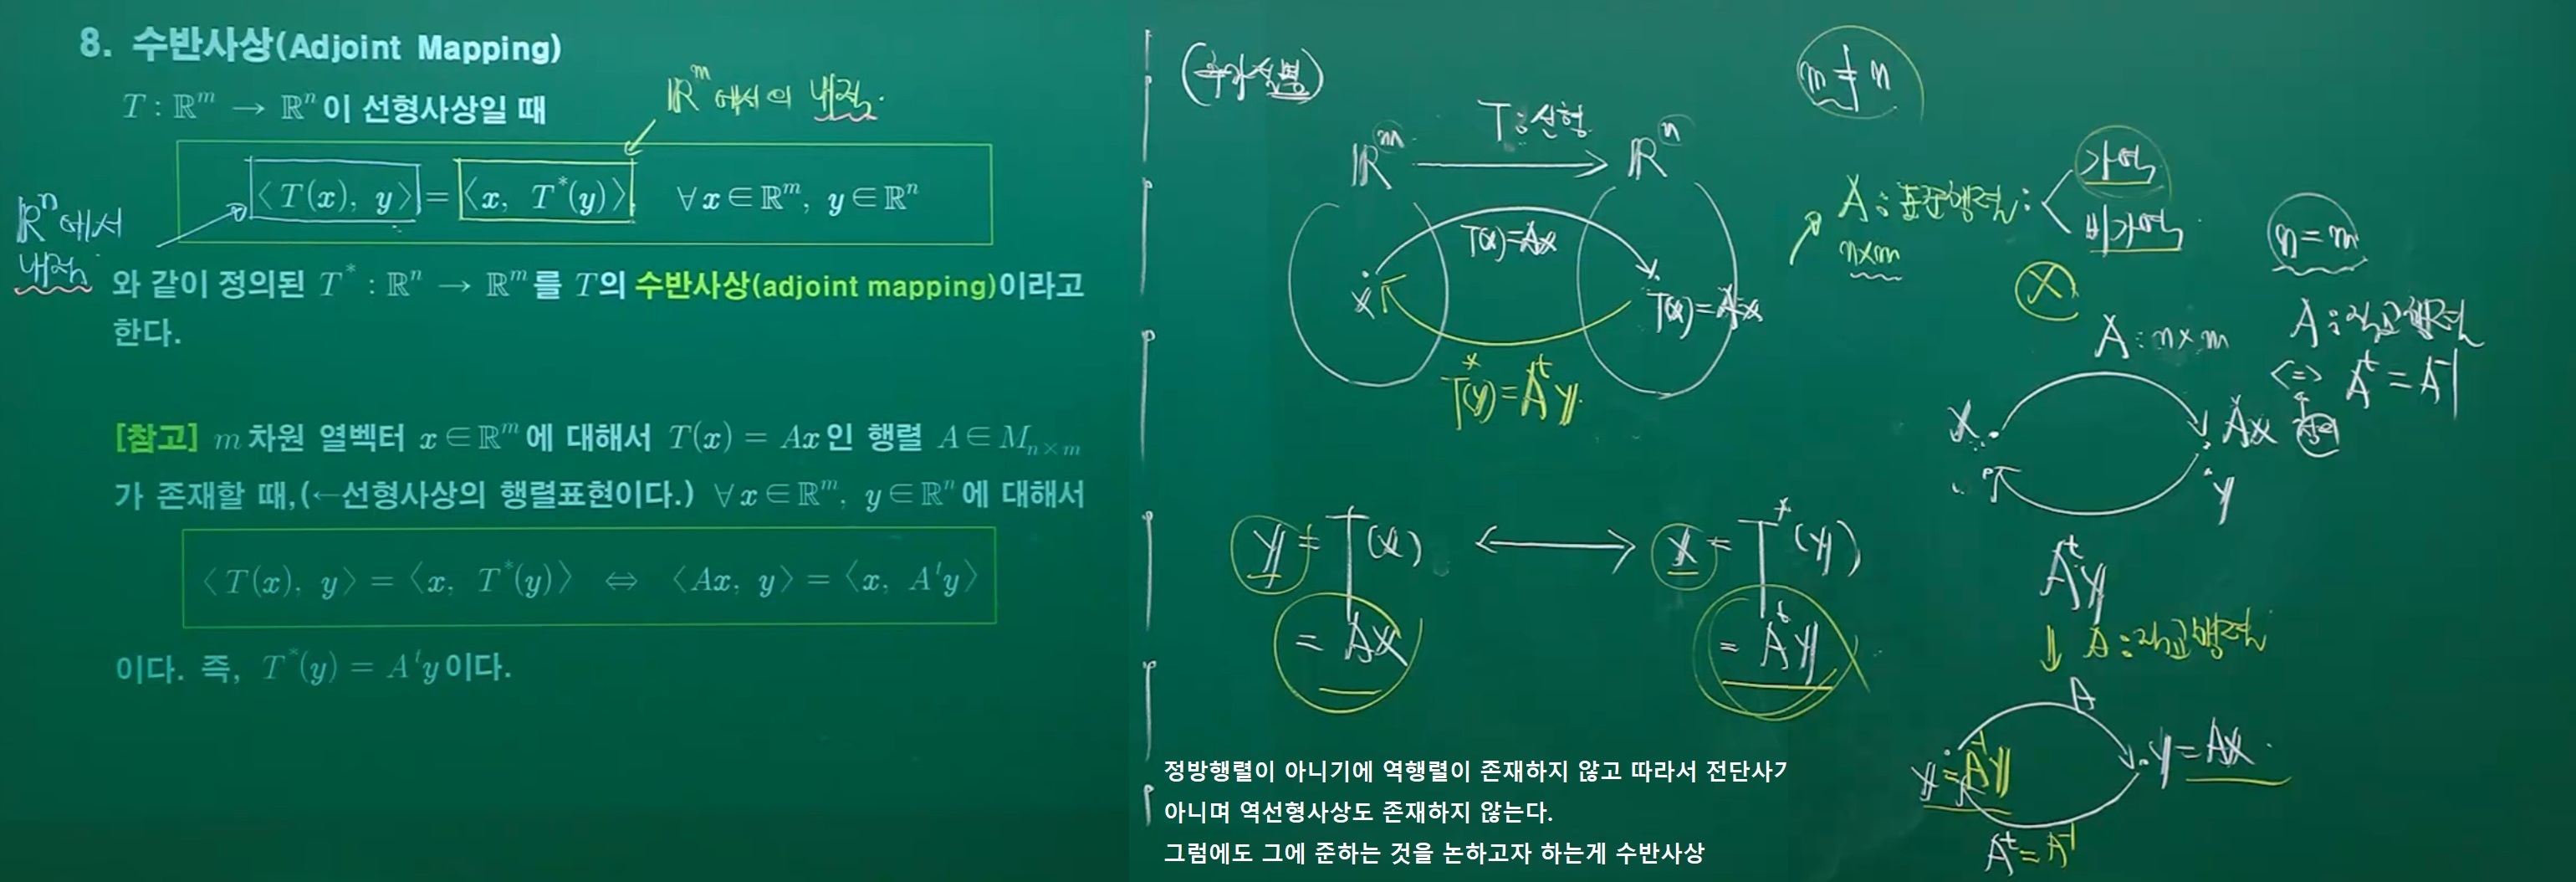 8. 수반사상(Adjoint Mapping)
T : ℝ^m → ℝ^n 이 선형사상일 때
ℝ^m 에서의 내적.
⟨T(x), y⟩ = ⟨x, T*(y)⟩ ∀x∈ℝ^m, y∈ℝ^n
ℝ^n에서
내적.
와 같이 정의된 T* : ℝ^n → ℝ^m를 T의 수반사상(adjoint mapping)이라고
한다.
[참고] m차원 열벡터 x∈ℝ^m에 대해서 T(x) = Ax인 행렬 A∈M_{n×m}
가 존재할 때,(←선형사상의 행렬표현이다.) ∀x∈ℝ^m, y∈ℝ^n에 대해서
⟨T(x), y⟩ = ⟨x, T*(y)⟩ ⇔ ⟨Ax, y⟩ = ⟨x, A^t y⟩
이다. 즉, T*(y) = A^t y이다.
(추가설명)
m ≠ n
T:선형
ℝ^m → ℝ^n
T(x)=Ax
x
T(x)=Ax
T*(y)=A^t y.
A : 표준행렬 :
n×m
가역
비가역
X
n=m
A : 직교행렬
⇔ A^t = A^-1
정의
A : n×m
x
Ax
y
A^t y
↓ A : 직교행렬
A
x=A^-1 y
y=Ax
A^t=A^-1
y = T(x) ↔ x = T*(y)
= Ax
= A^t y
정방행렬이 아니기에 역행렬이 존재하지 않고 따라서 전단사가
아니며 역선형사상도 존재하지 않는다.
그럼에도 그에 준하는 것을 논하고자 하는게 수반사상